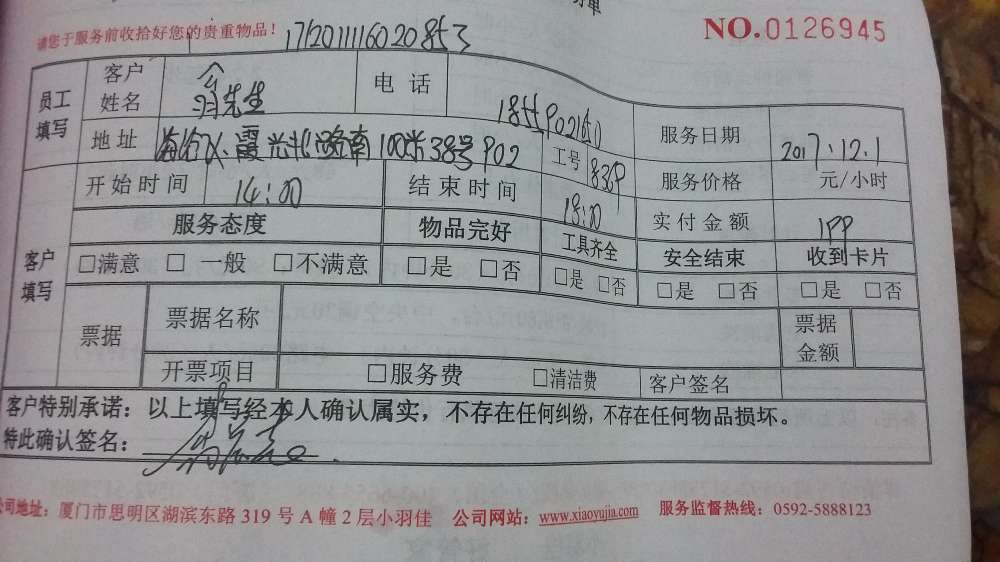 请您于服务前收拾好您的贵重物品！ 1712011116020853 NO.0126945
员工填写 客户姓名 翁先生 电话 服务日期 2017.12.1
地址 霞光 路南100米38号P02 工号
开始时间 14:00 结束时间 18:00 服务价格 元/小时
实付金额
客户填写 服务态度 物品完好 工具齐全 安全结束 收到卡片
□满意 □ 一般 □不满意 □是 □否 □是 □否 □是 □否 □是 □否
票据 票据名称 票据金额
开票项目 □服务费 □清洁费 客户签名
客户特别承诺：以上填写经本人确认属实，不存在任何纠纷，不存在任何物品损坏。
特此确认签名：
公司地址：厦门市思明区湖滨东路 319 号 A 幢 2 层小羽佳 公司网站：www.xiaoyujia.com 服务监督热线：0592-5888123